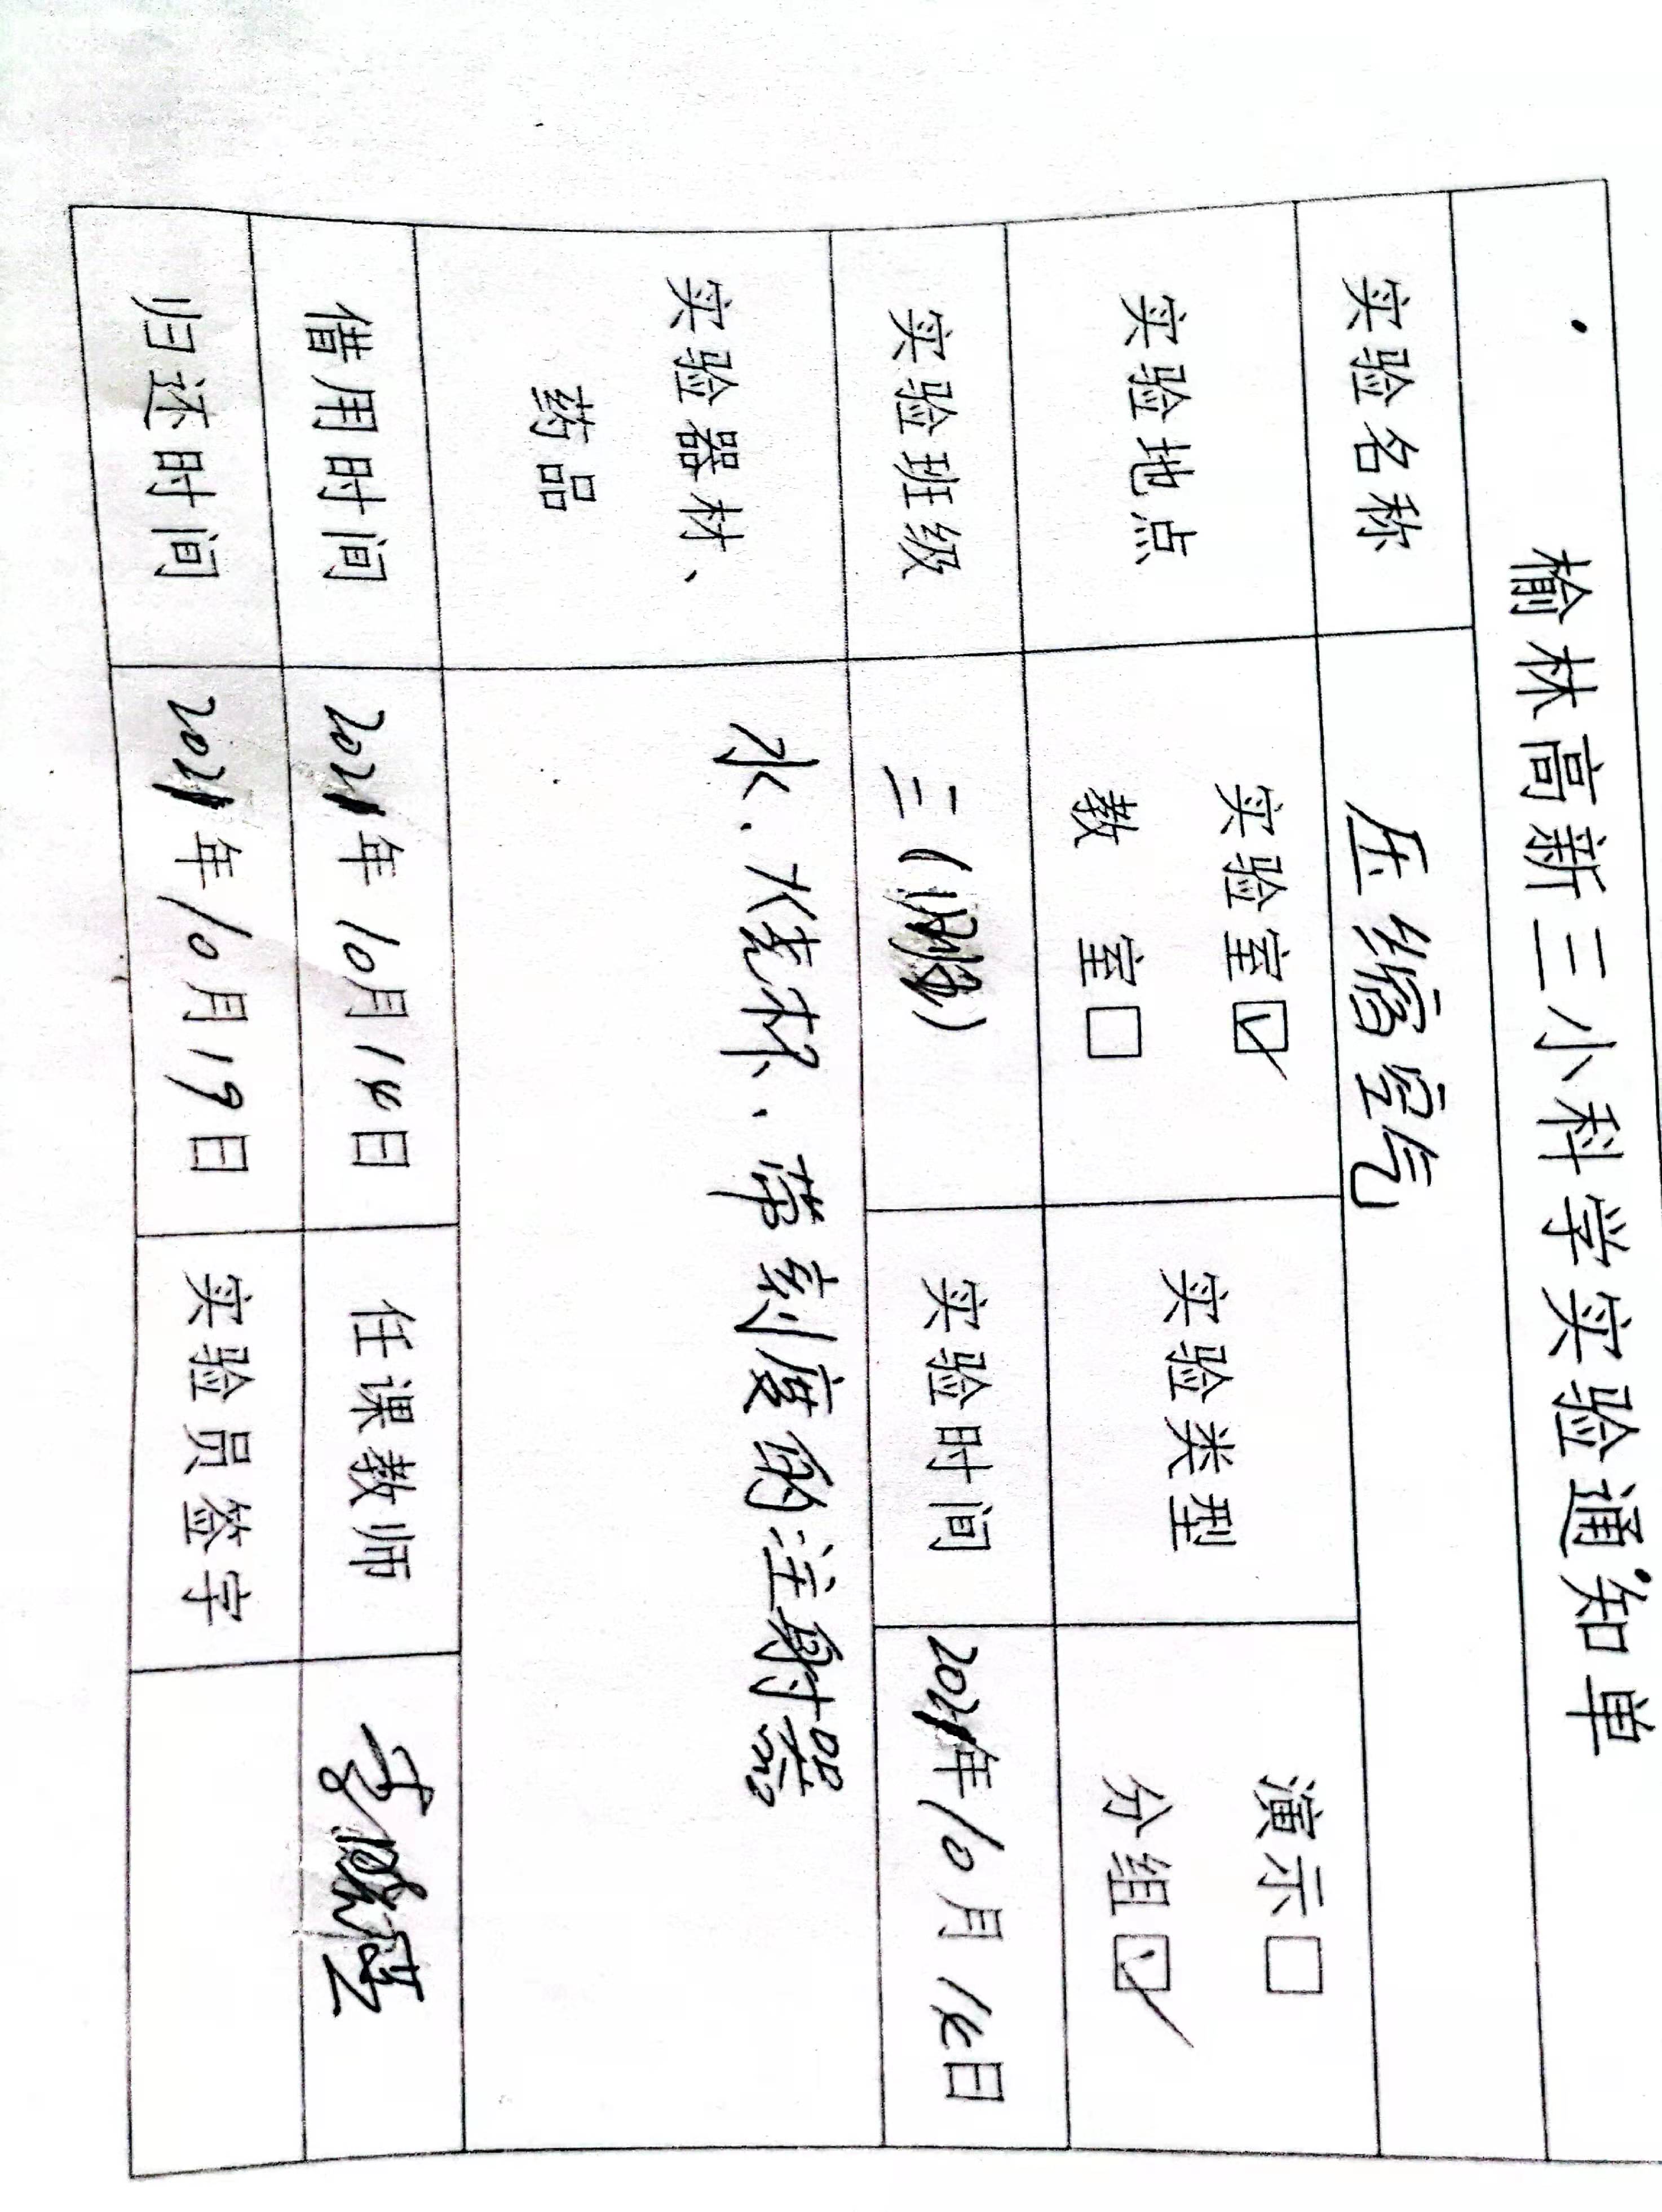 榆林高新三小科学实验通知单
实验名称 压缩空气
实验地点 实验室☑ 教 室□ 实验类型 演示□ 分组☑
实验班级 三( ) 实验时间 2021年10月14日
实验器材、药品 水、大烧杯、带刻度的注射器
借用时间 2021年10月14日 任课教师 李
归还时间 2021年10月19日 实验员签字